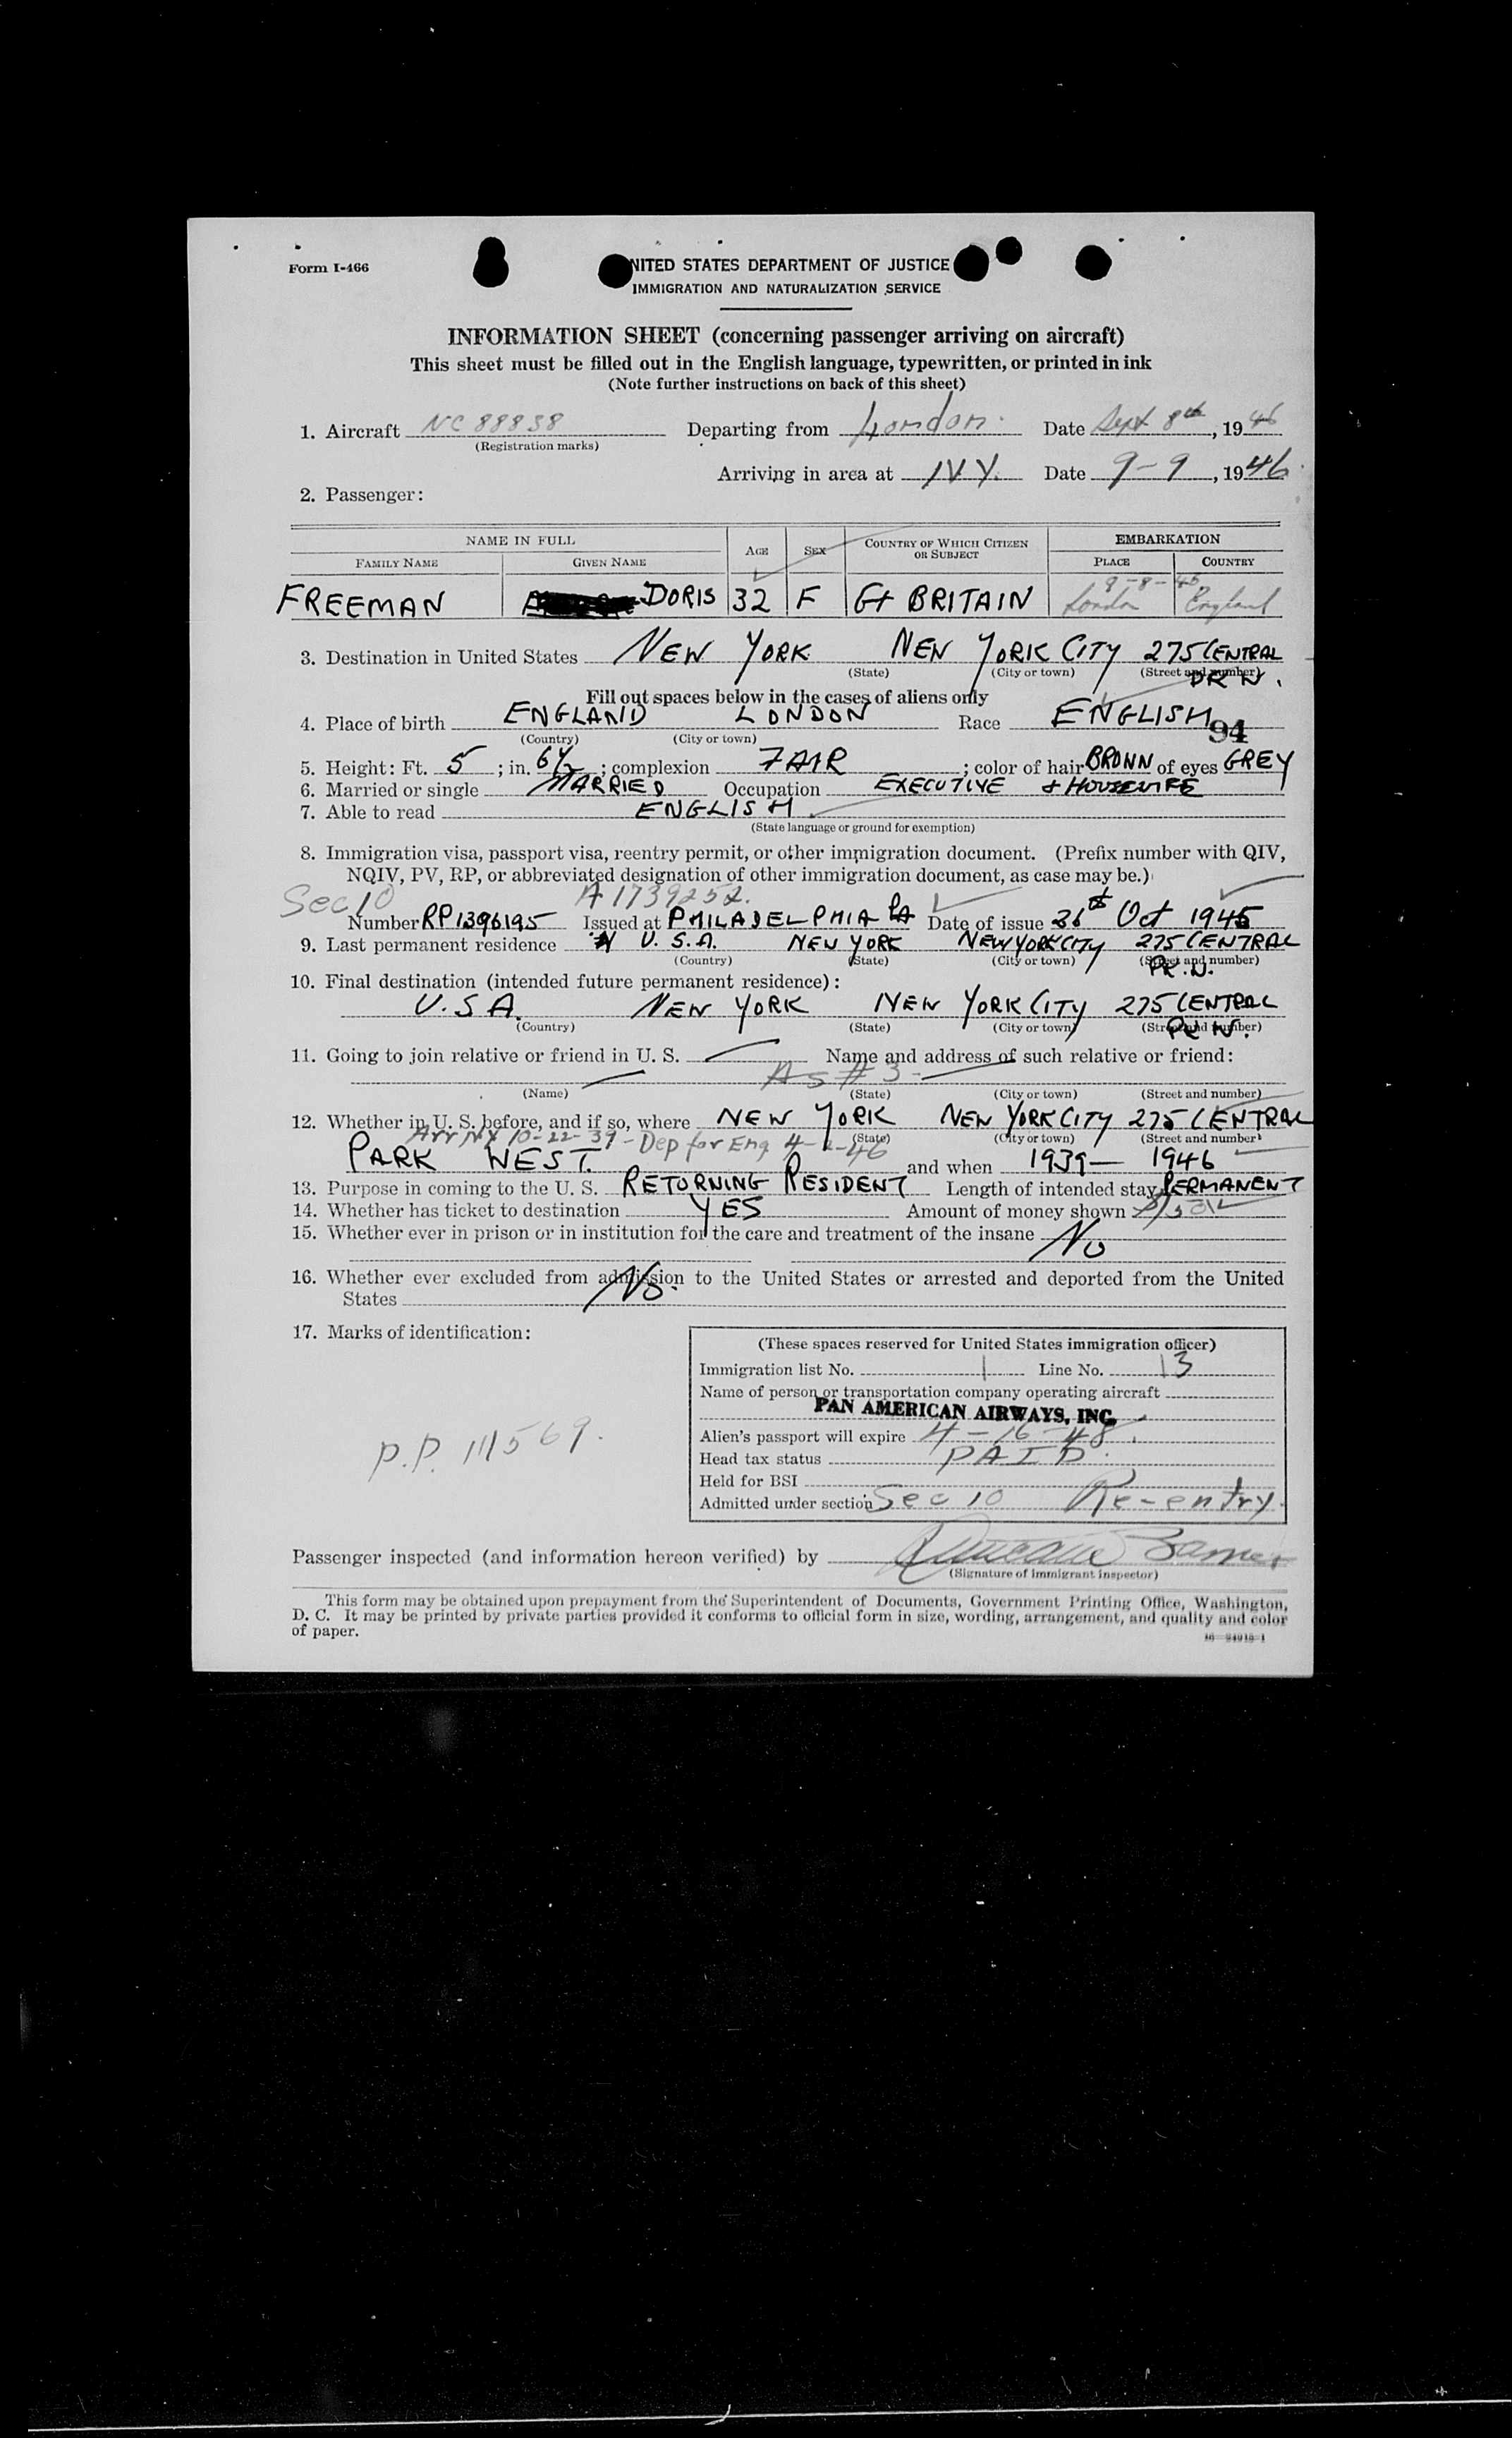 Form I-466
NITED STATES DEPARTMENT OF JUSTICE
IMMIGRATION AND NATURALIZATION SERVICE
INFORMATION SHEET (concerning passenger arriving on aircraft)
This sheet must be filled out in the English language, typewritten, or printed in ink
(Note further instructions on back of this sheet)
1. Aircraft NC 88838 Departing from London. Date Sept 8th, 1946
(Registration marks)
Arriving in area at NY. Date 9-9, 1946.
2. Passenger:
NAME IN FULL AGE SEX COUNTRY OF WHICH CITIZEN OR SUBJECT EMBARKATION
FAMILY NAME GIVEN NAME PLACE COUNTRY
FREEMAN DORIS 32 F Gt BRITAIN London England
3. Destination in United States NEW YORK NEW YORK CITY 275 CENTRAL
(State) (City or town) (Street and number)
PK W.
Fill out spaces below in the cases of aliens only
4. Place of birth ENGLAND LONDON Race ENGLISH 94
(Country) (City or town)
5. Height: Ft. 5; in. 6½; complexion FAIR; color of hair BROWN of eyes GREY
6. Married or single MARRIED Occupation EXECUTIVE & HOUSEWIFE
7. Able to read ENGLISH
(State language or ground for exemption)
8. Immigration visa, passport visa, reentry permit, or other immigration document. (Prefix number with QIV,
NQIV, PV, RP, or abbreviated designation of other immigration document, as case may be.)
Sec 10 A 1739252.
Number RP1396195 Issued at PHILADELPHIA PA Date of issue Oct 1945
9. Last permanent residence U.S.A. NEW YORK NEW YORK CITY 275 CENTRAL
(Country) (State) (City or town) (Street and number)
PK. W.
10. Final destination (intended future permanent residence):
U.S.A. NEW YORK NEW YORK CITY 275 CENTRAL
(Country) (State) (City or town) (Street and number)
PK W.
11. Going to join relative or friend in U. S. Name and address of such relative or friend:
As #3
(Name) (State) (City or town) (Street and number)
12. Whether in U. S. before, and if so, where NEW YORK NEW YORK CITY 275 CENTRAL
(State) (City or town) (Street and number)
Arr NY 10-22-39 - Dep for Eng
PARK WEST. and when 1939 — 1946
13. Purpose in coming to the U. S. RETURNING RESIDENT Length of intended stay PERMANENT
14. Whether has ticket to destination YES Amount of money shown
15. Whether ever in prison or in institution for the care and treatment of the insane No
16. Whether ever excluded from admission to the United States or arrested and deported from the United
States No.
17. Marks of identification:
P.P. 111569.
(These spaces reserved for United States immigration officer)
Immigration list No. 1 Line No. 13
Name of person or transportation company operating aircraft
PAN AMERICAN AIRWAYS, INC.
Alien's passport will expire 4-16-48.
Head tax status PAID
Held for BSI
Admitted under section Sec 10 Re-entry
Passenger inspected (and information hereon verified) by
(Signature of immigrant inspector)
This form may be obtained upon prepayment from the Superintendent of Documents, Government Printing Office, Washington,
D. C. It may be printed by private parties provided it conforms to official form in size, wording, arrangement, and quality and color
of paper.